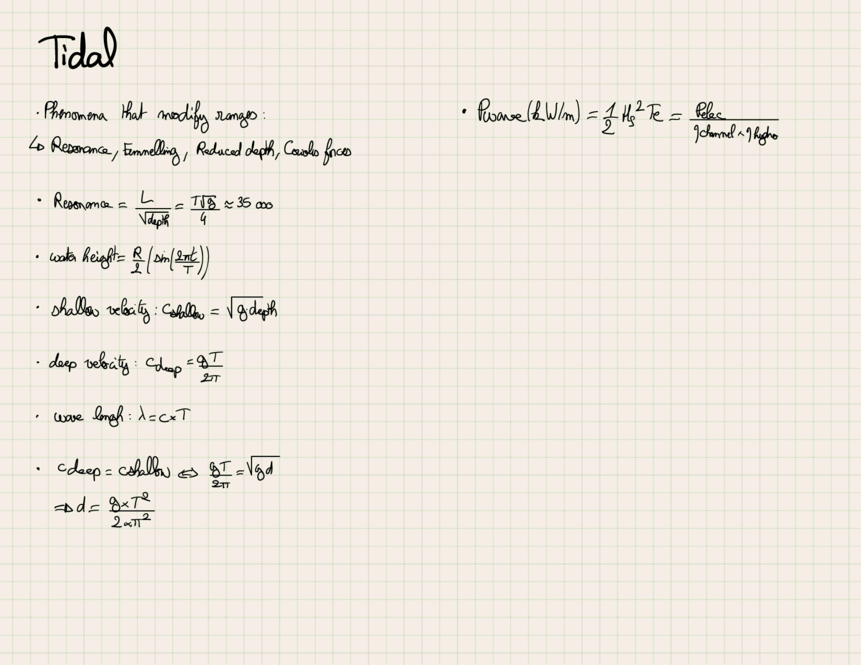 Tidal
· Phenomena that modify ranges :
↳ Resonance, Funnelling, Reduced depth, Coriolis forces
· Resonance = L/√depth = T√g/4 ≈ 35 000
· water height = R/2 (sin(2πt/T))
· shallow velocity : Cshallow = √g depth
· deep velocity : Cdeep = gT/2π
· wave lengh : λ = c × T
· Cdeep = Cshallow ⇔ gT/2π = √gd
⇒ d = g×T²/2×π²
· Pwave (kW/m) = 1/2 Hs² Te = Pelec/ηchannel × ηhydro